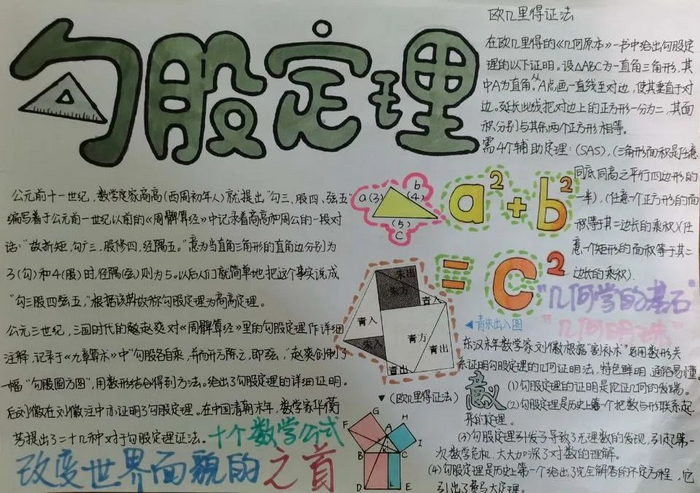 勾股定理
公元前十一世纪，数学家商高(西周初年人)就提出"勾三、股四、弦五"
编写着于公元前一世纪以前的《周髀算经》中记录着商高和周公的一段对
话："故折矩，勾广三，股修四，经隅五。"意为当直角三角形的直角边分别为
3(勾)和4(股)时，径隅(弦)则为5。以后人们就简单地把这个事实说成
"勾三股四弦五，"根据该典故称勾股定理为商高定理。
公元三世纪，三国时代的赵爽对《周髀算经》里的勾股定理作详细
注释，记录于《九章算术》中"勾股各自乘，并而开方除之，即弦，"赵爽创制了
一幅"勾股圆方图"，用数形结合得到方法。给出了勾股定理的详细证明。
后刘徽在刘徽注中亦证明了勾股定理。在中国清朝末年，数学家华蘅
芳提出了二十几种对于勾股定理证法。
十个数学公式
改变世界面貌的之首
a(3)
b
(4)
(5)
C
a²+b²
=c²
朱出
朱方
朱入
青入
青入
青方
青出
青出
◀青朱出入图
▼(欧几里得证法)
G
F
A
H
K
B
C
D
L
E
欧几里得证法
在欧几里得的《几何原本》一书中给出勾股定
理的以下证明。设△ABC为一直角三角形，其
中A为直角。从A点画一直线至对边，使其垂直于对
边。延长此线把对边上的正方形一分为二，其面
积分别与其余两个正方形相等。
需4个辅助定理：(SAS)，(三角形面积是任意
同底同高之平行四边形的
一半)，(任意一个正方形的面
积等于其二边长的乘积)(任
意一个矩形的面积等于其二
边长的乘积)
"几何学的基石"
"几何明珠"
东汉末年数学家刘徽根据"割补术"运用数形关
系证明勾股定理的几何证明法，特色鲜明、通俗易懂
意义
(1)勾股定理的证明是论证几何的发端。
(2)勾股定理是历史上第一个把数与形联系起
来的定理。
(3)勾股定理引发了导致了无理数的发现，引起第一
次数学危机，大大加深了对数的理解。
(4)勾股定理是历史上第一个给出了完全解答的不定方程，它
引出了费马大定理。